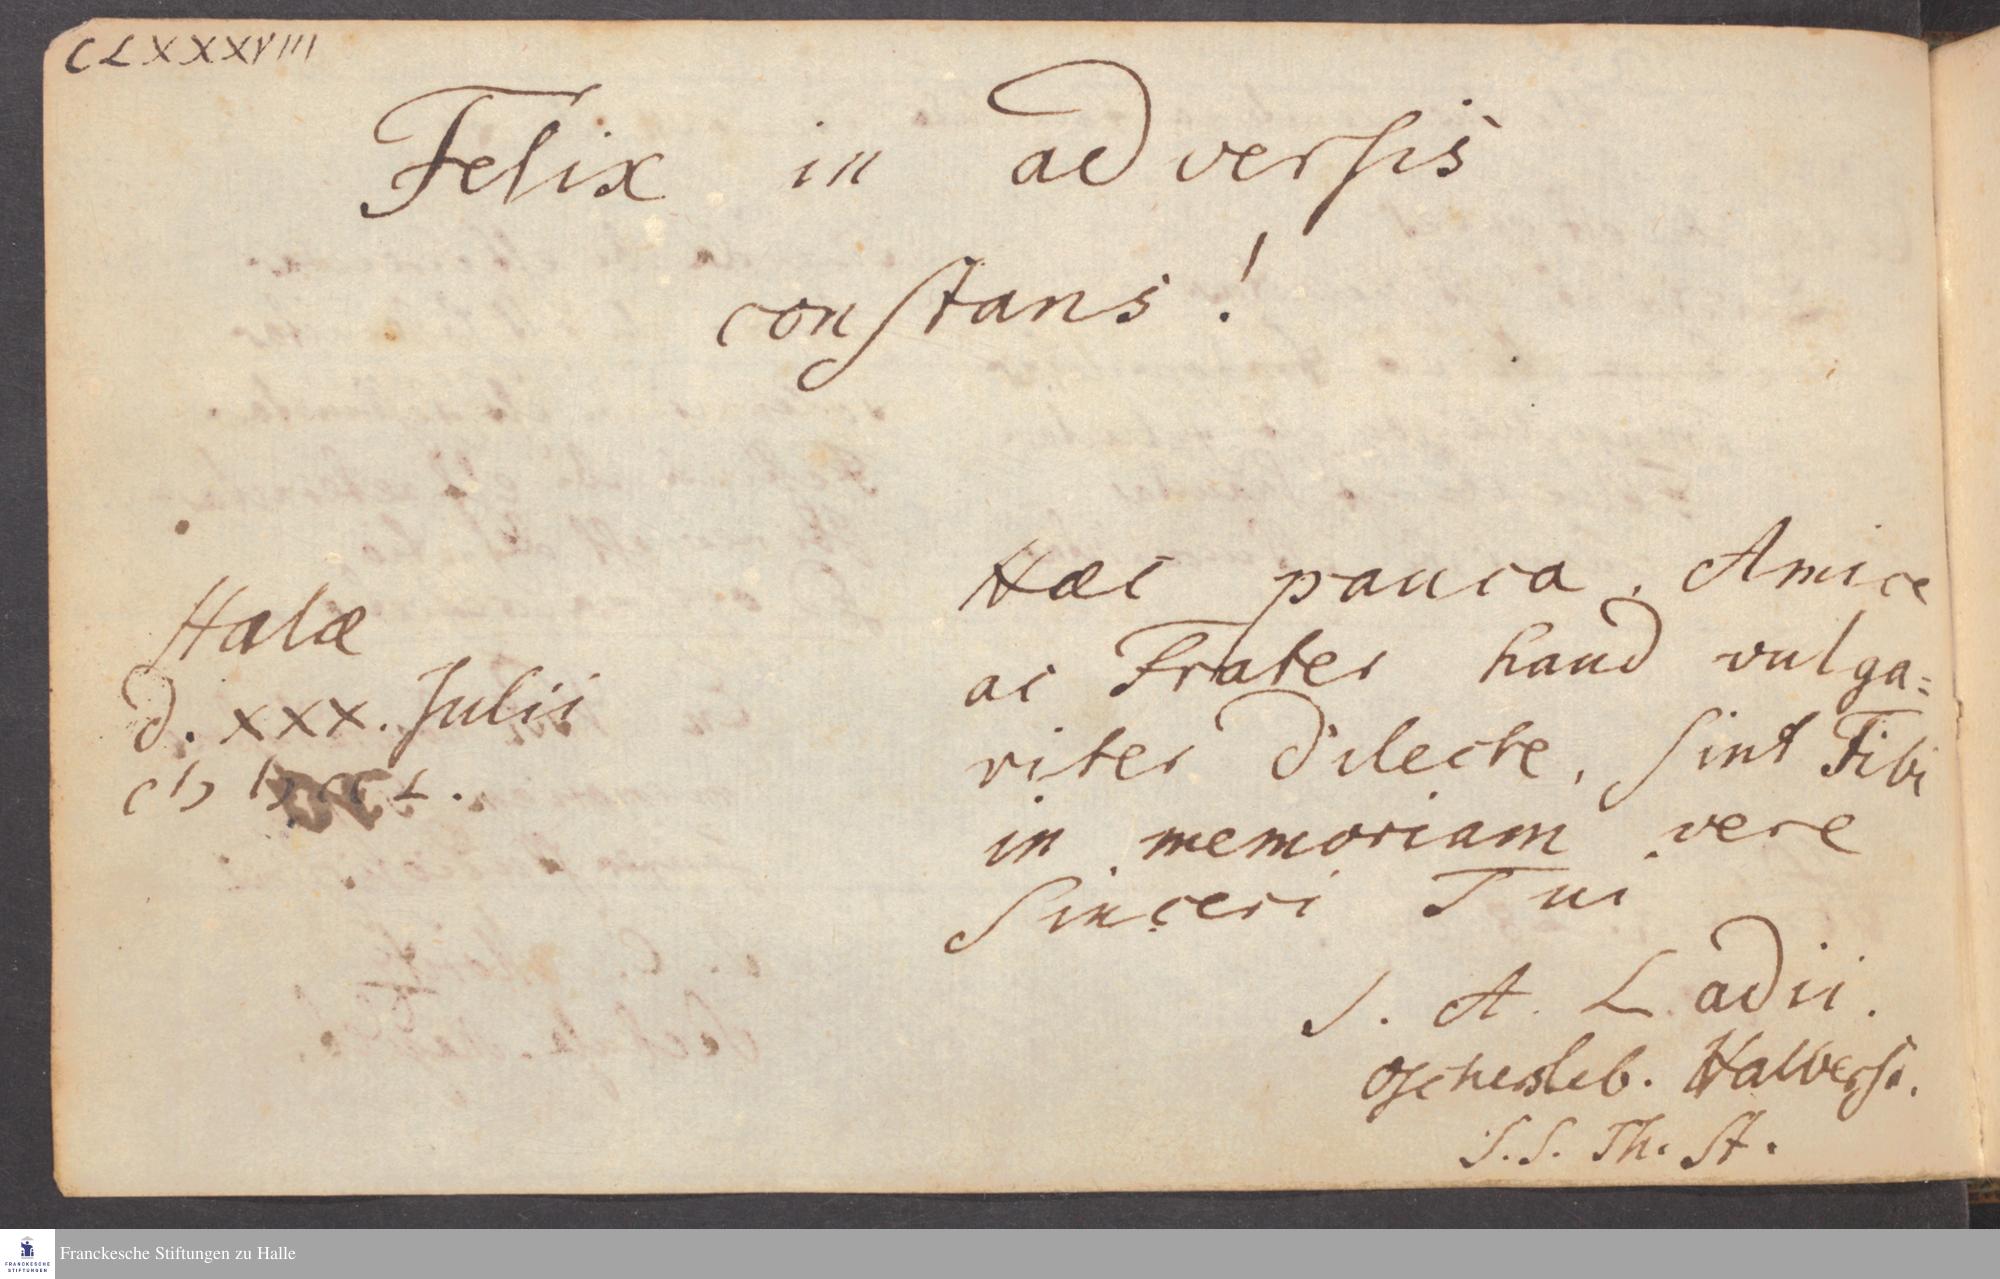 CLXXXVIII
Felix in adversis
constans!
Halæ
d. XXX. Julii
Hæc pauca, Amice
ac Frater haud vulga=
riter dilecte, sint Tibi
in memoriam vere
sinceri Tui
J. A. Ladii.
Oschersleb. Halberst.
S.S. Th. St.
Franckesche Stiftungen zu Halle
FRANCKESCHE
STIFTUNGEN